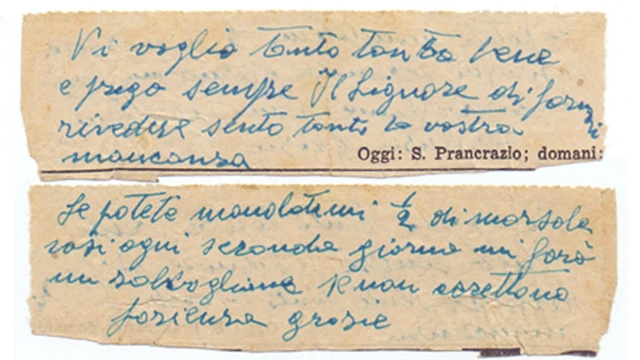 Vi voglio tanto tanto bene
e prego sempre Il Signore di farmi
rivedere sento tanto la vostra
mancanza
Oggi: S. Prancrazio; domani:
Se potete mandatemi ½ di marsala
così ogni seconda giorno mi farò
un zabaglione e non
pazienza grazie